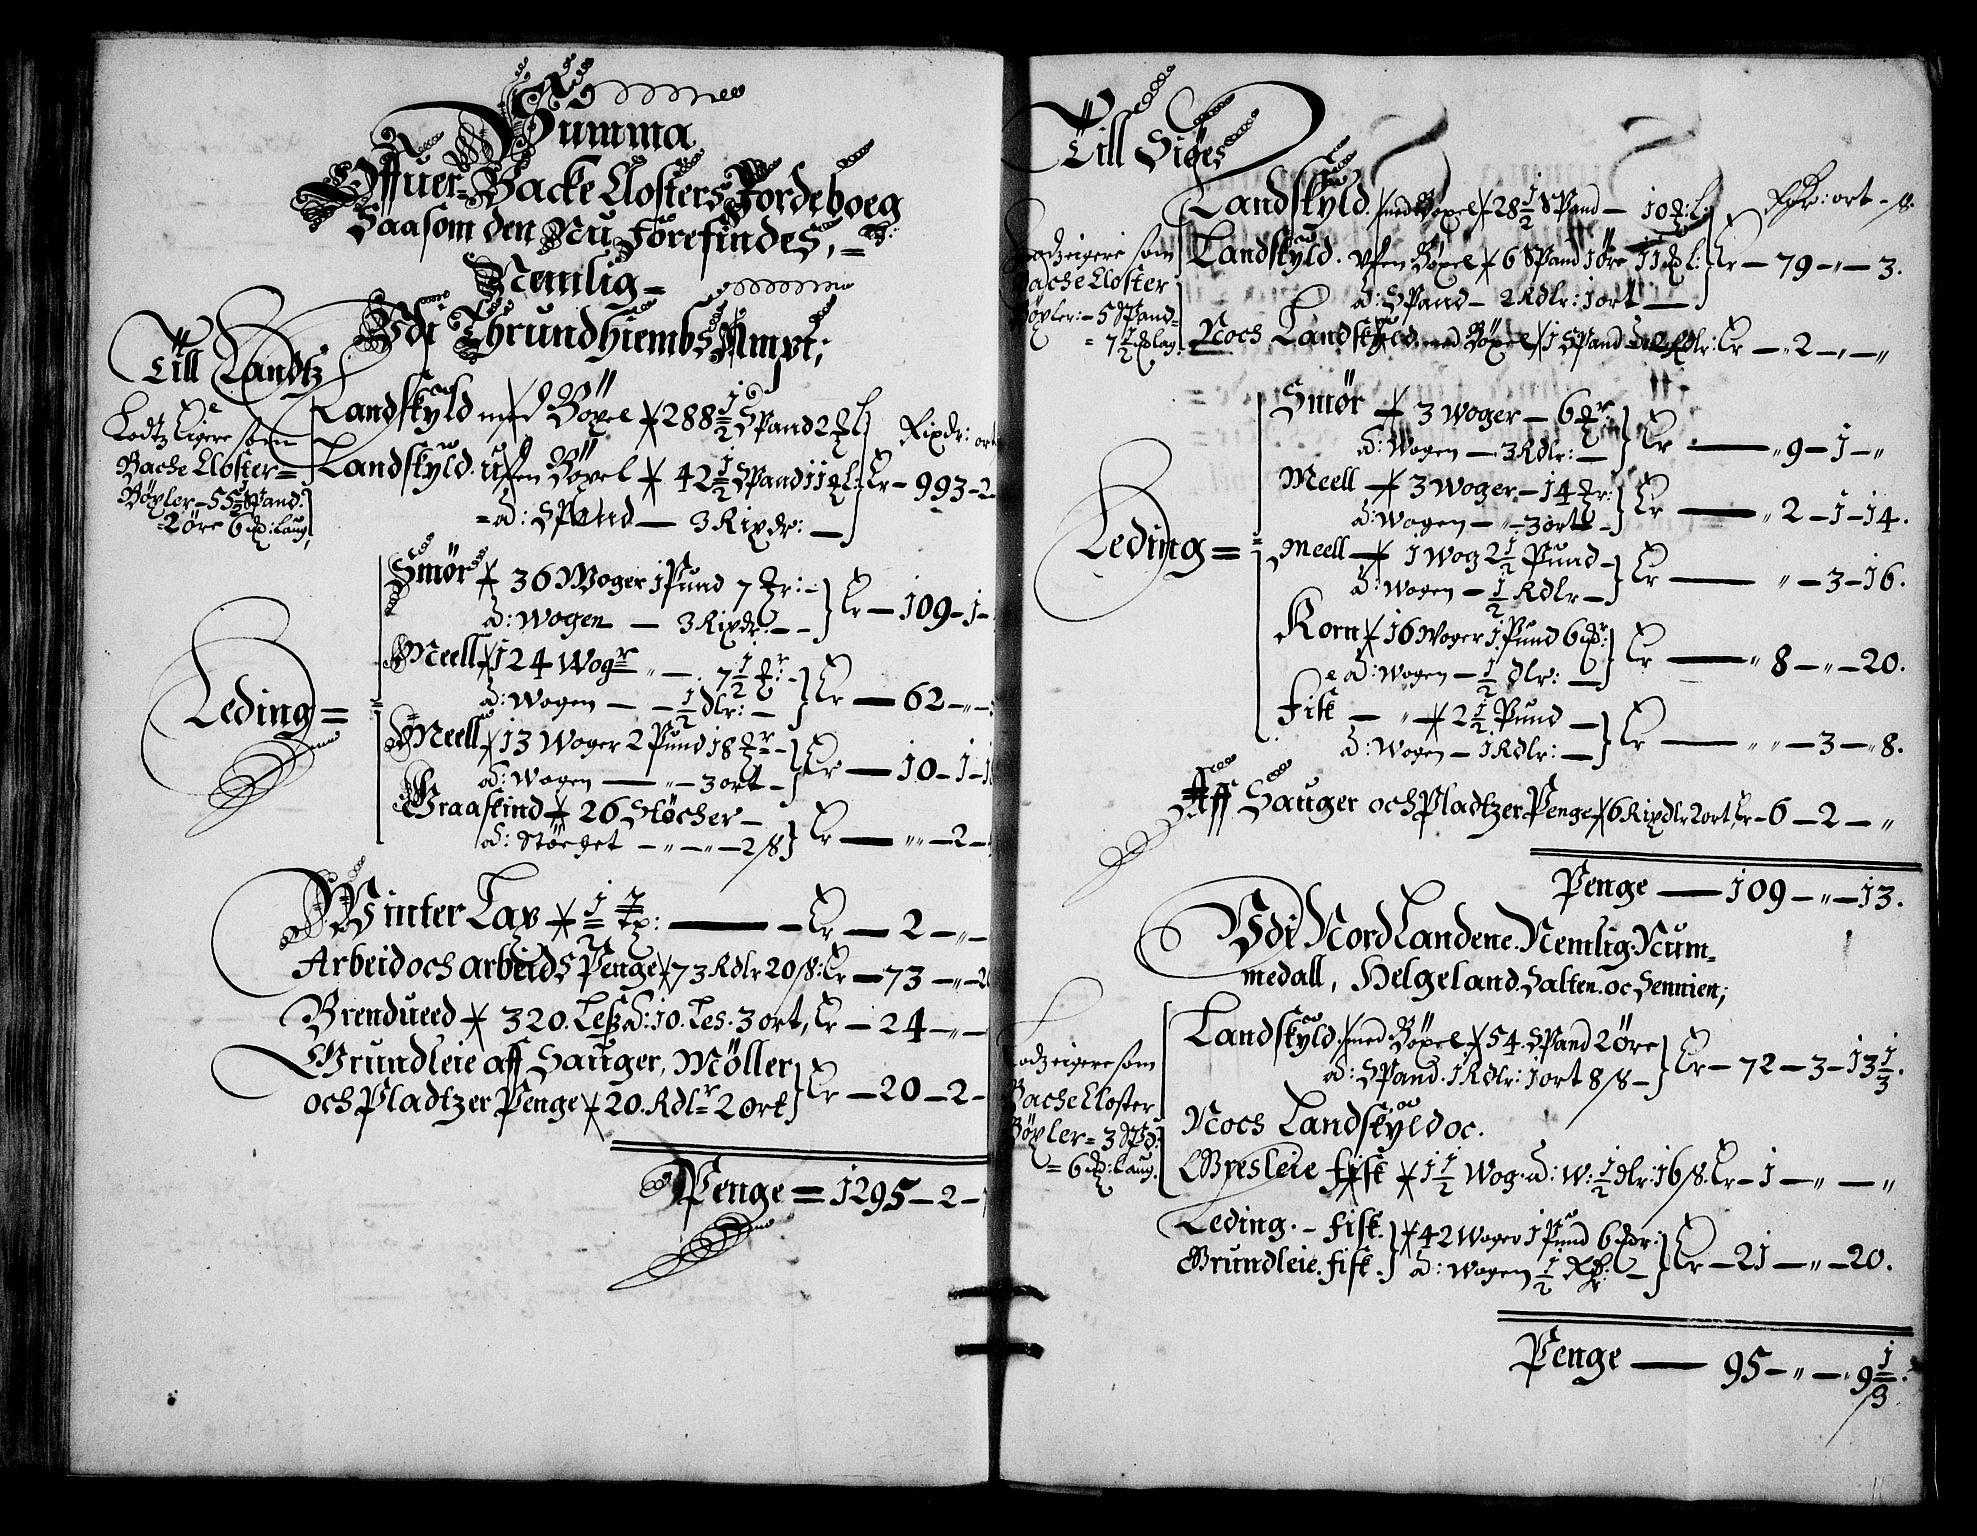 Summa
Offuer Backe Closters Jordeboeg
Saasom den Nu Forefindes,
Nemlig
Udi Thrundhiembs Ampt;
Till Landtz
Lodtz Eigere som
Bache Closter
Böxler 55 1/2 Spand:
2 öre
Landskÿld med Böxel 288 1/2 Spand 2
Landskÿld uften Böxel 42 1/2 Spand 11
â: Spand 3 Rixdr:
Rixdr: ort
Er 993 - 2
Leding
Smör 36 Woger 1 Pund 7
â: Wogen 3 Rixdr:
Er 109 - 1
Meell 124 Wogr 7 1/2
â: Wogen 1/2 dlr:
Er 62 - "
Meell 13 Woger 2 Pund 18
â: Wogen " 3 ort
Er 10 - 1
Graaskind 26 Stöcher
â: Stöchet " - " - 2 ß
Er " - 2
Winter Lax 1 Er 2 - "
Arbeid och arbeids Penge 73 Rdlr 20 ß: Er 73 - "
Brendueed 320. Less â: 10. Les. 3 ort, Er 24 - "
Grundleie aff Sauger, Möller
och Pladtzer Penge 20. Rdlr 2 ort
Er 20 - 2
Penge = 1295 - 2
Till Siöes
Landskÿld. med Böxel 28 1/2 Spand
Rdr: ort - ß.
Lodzeigere som
Bache Closter
Böxler: 5 Spand
7 1/2 lag
Landskÿld. uften Böxel 6 Spand 1 öre
â: Spand 2 Rdlr: 1 ort
Er 79 - " - 3.
Noch Landskÿld med Böxel 1 Spand Er " 2 - " - "
Leding
Smör 3 Woger 6
â: Wogen 3 Rdlr:
Er " 9 - 1 - "
Meell 3 Woger 14
â: Wogen " 3 ort
Er " 2 - 1 - 14.
Meell 1 Wog 2 1/2 Pund
â: Wogen 1/2 Rdlr
Er " - 3 - 16.
Korn 16 Woger 1 Pund 6
â: Wogen 1/2 dlr:
Er " 8 - " - 20.
Fisk " 2 1/2 Pund
â: Wogen 1 Rdlr:
Er " " - 3 - " 8.
Aff Sauger och Pladtzer Penge 6 Rixdlr 2 ort, Er 6 - 2 - "
Penge 109 - " - 13.
Udi Nordlandene. Nemlig. Num-
medall, Helgeland. Salten. oc Sennien;
Lodzeigere som
Bache Closter
Böxler 3
6
Landskÿld. med Böxel 54. Spand 2 öre
â: Spand. 1 Rdlr: 1 ort 8 ß
Er 72 - 3 - 13 1/3.
Noch Landskÿld oc.
Gresleie fisk 1 1/2 Wog. â: W: 1/2 dlr: 16 ß. Er 1 - " - "
Leding. - fisk.
Grundleie. fisk.
42 Woger 1 Pund 6
â: Wogen 1/2
Er 21 - " - 20.
Penge 95 - " - 9 1/3.